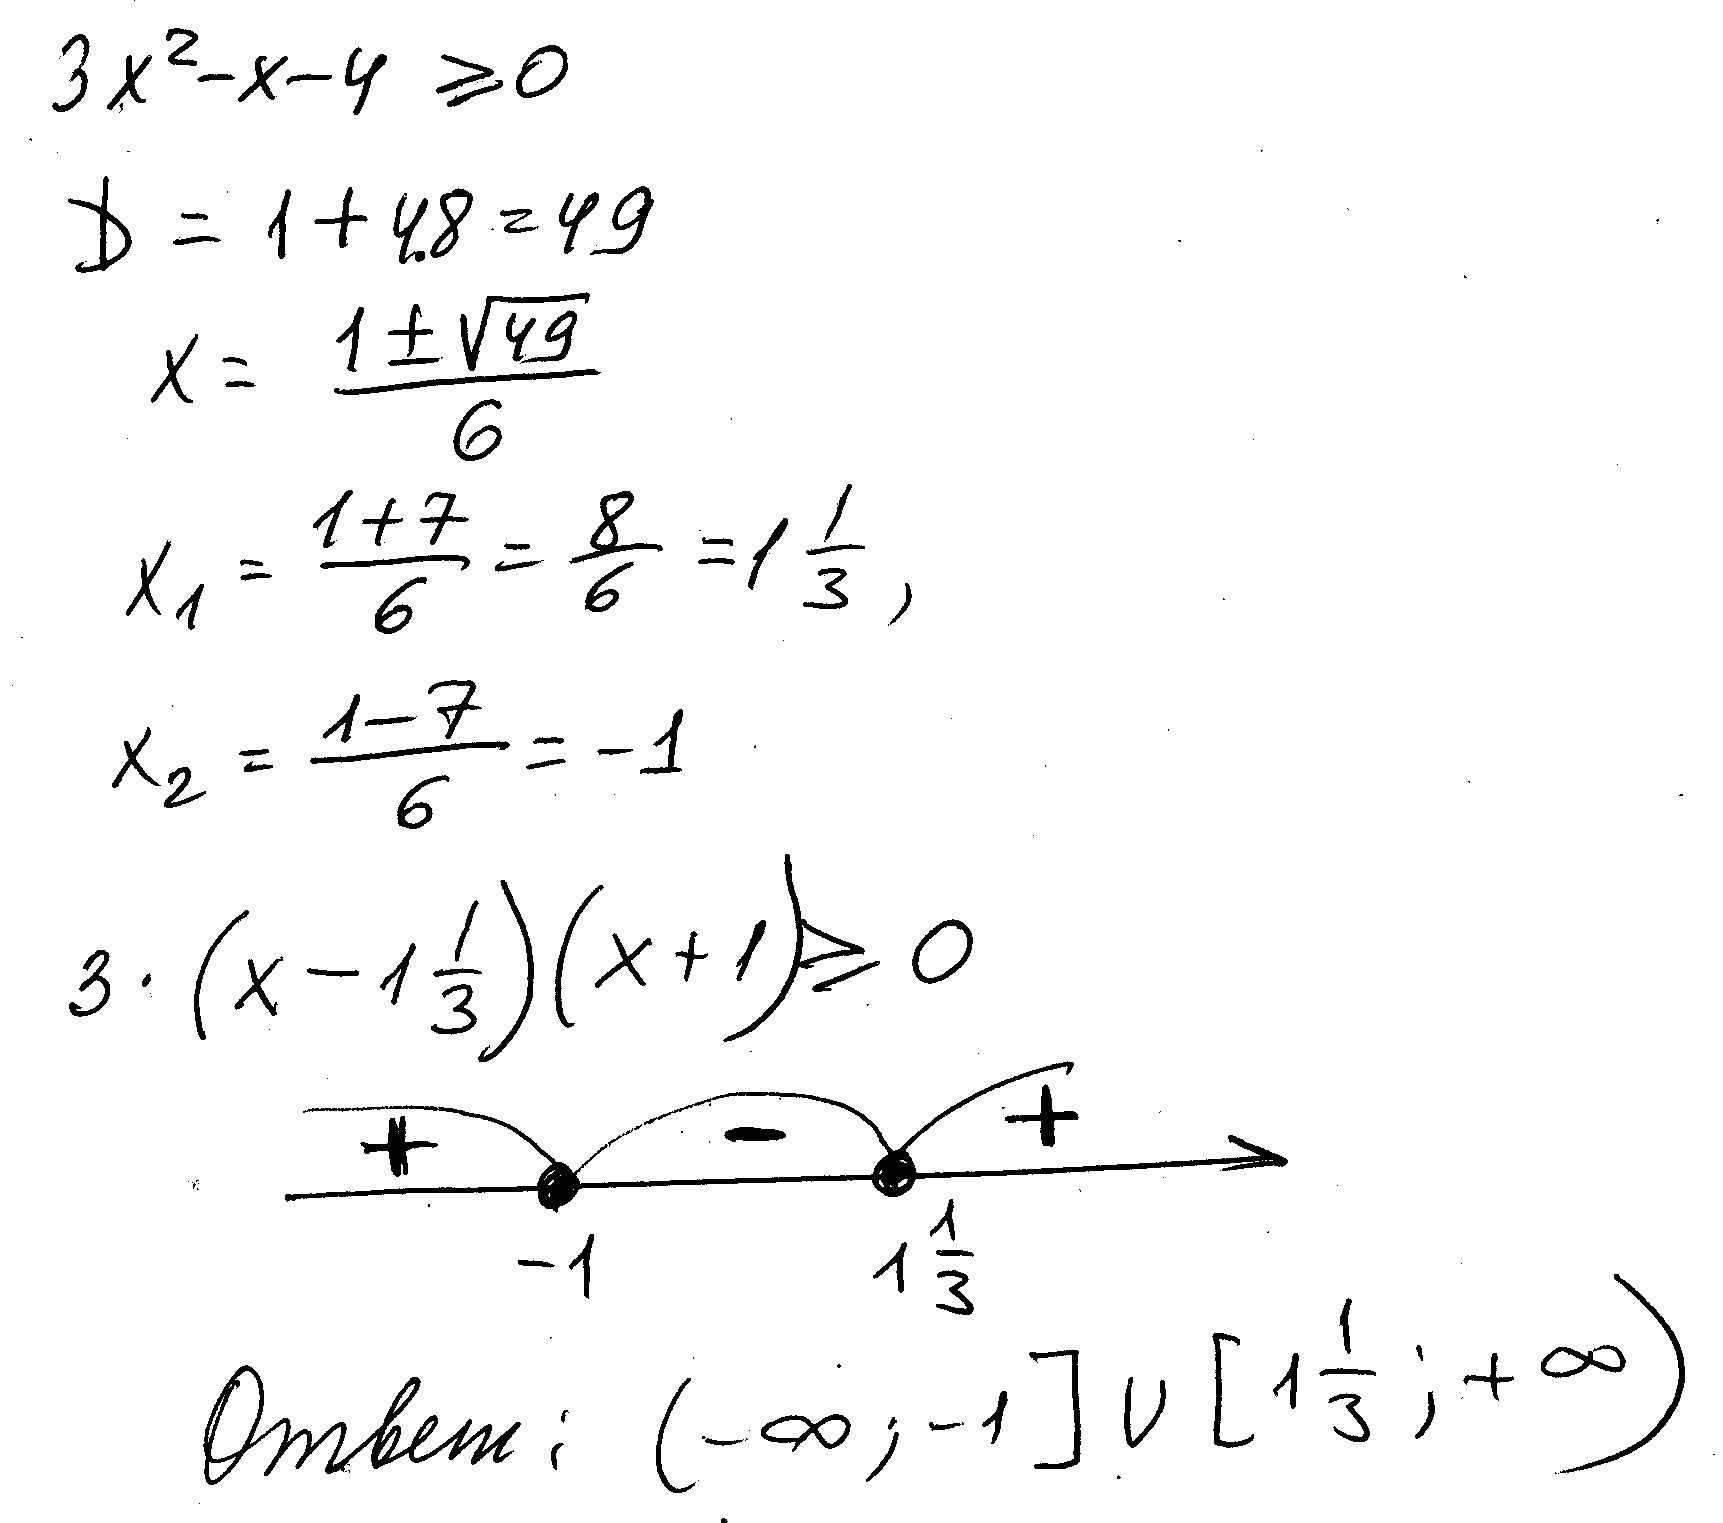 3x² - x - 4 ⩾ 0
D = 1 + 48 = 49
x = (1 ± √49)/6
x₁ = (1 + 7)/6 = 8/6 = 1 1/3,
x₂ = (1 - 7)/6 = -1
3 · (x - 1 1/3)(x + 1) ⩾ 0
+ - +
-1 1 1/3
Ответ: (-∞; -1] ∪ [1 1/3; +∞)